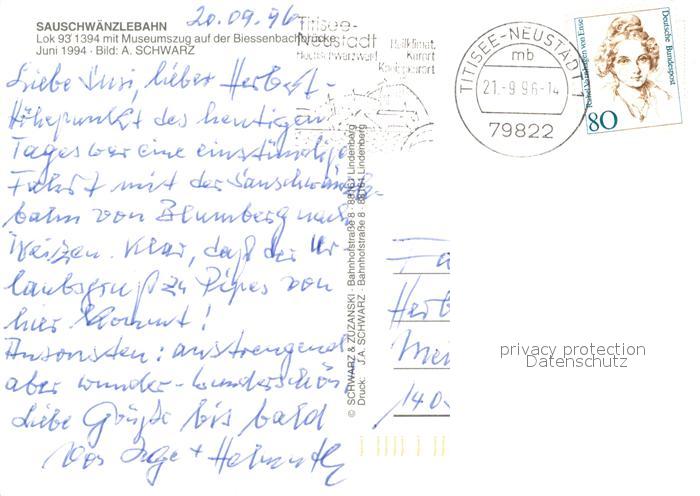 SAUSCHWÄNZLEBAHN
Lok 93 1394 mit Museumszug auf der Biessenbachbrücke
Juni 1994 · Bild: A. SCHWARZ
20.09.96
Liebe Susi, lieber Herbert -
Höhepunkt des heutigen
Tages war eine einstündige
Fahrt mit der Sauschwänzle-
bahn von Blumberg nach
Weizen. Klar, daß der Ur-
laubsgruß zu Pipes von
hier kommt!
Ansonsten: anstrengend
aber wunder-wunderschön
Liebe Grüße bis bald
Von Inge + Helmuth
Titisee-
Neustadt
Hochschwarzwald
Heilklimat.
Kurort
Kneippkurort
TITISEE-NEUSTADT 1
mb
21.-9.96-14
79822
Deutsche Bundespost
Rahel Varnhagen von Ense
80
© SCHWARZ & ZUZANSKI · Bahnhofstraße 8 · 88161 Lindenberg
Druck: J.A. SCHWARZ · Bahnhofstraße 8 · 88161 Lindenberg
Fa
Herb
Mei
140
privacy protection
Datenschutz